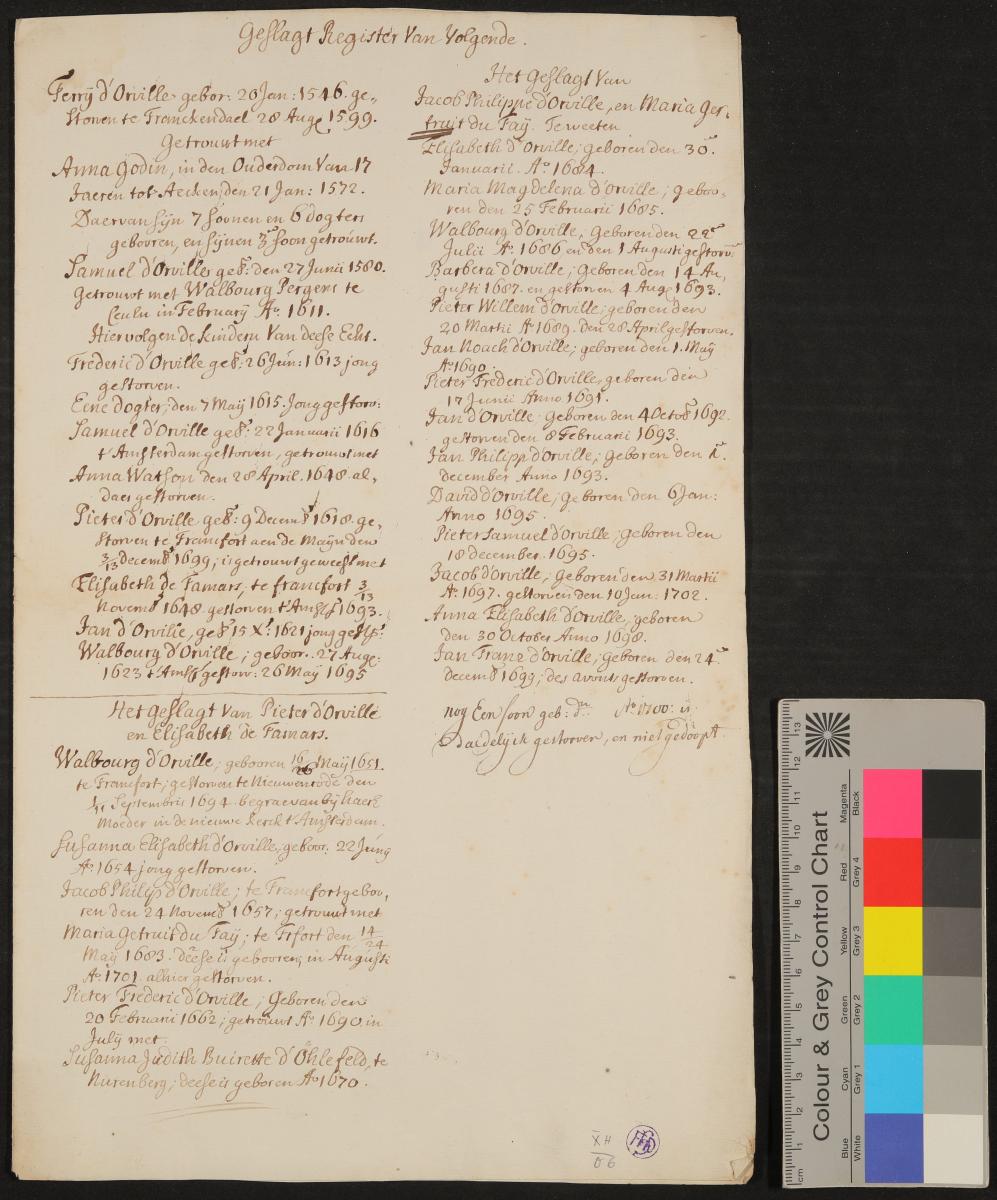 Geslagt Register Van Volgende.
Ferrÿ d'Orville gebor: 20 Jan: 1546. ge„
storven te Franckendael 28 Aug 1599.
Getrouwt met
Anna Godin, in den Ouderdom Van 17
Jaeren tot Aecken, den 21 Jan: 1572.
Daervan sijn 7 soonen en 6 dogters
gebooren, en sijnen soon getrouwt.
Samuel d'Orville, geb: den 27 Junii 1580.
Getrouwt met Walbourg Pergens te
Ceuln in Februarÿ Ao. 1611.
Hier volgen de kindern Van deese Echt.
Frederic d'Orville geb: 26 Jun: 1613 jong
gestorven.
Eene dogter, den 7 Maÿ 1615. Jong gestorv:
Samuel d'Orville geb: 22 Januarii 1616
t' Amsterdam gestorven, getrouwt met
Anna Watson den 28 April. 1648. al„
daer gestorven.
Pieter d'Orville geb: 9 Decemb 1618. ge„
storven te Francfort aen de Maÿn den
3/13 decemb 1699, is getrouwt geweest met
Elisabeth de Famars, te francfort 3/13
Novemb 1648 gestorven t' Amst 1693.
Jan d'Orville, geb 15 Xb: 1621 jong gest:
Walbourg d'Orville; geboor. 27 Aug:
1623 t' Amst gestorv: 26 Maÿ 1695
Het geslagt Van Pieter d'Orville
en Elisabeth de Famars.
Walbourg d'Orville; gebooren 16/26 Maÿ 1651.
te Francfort; gestorven te Nieuwenrode den
Septembris 1694 begraeven bij haere
Moeder in de nieuwe kerck t' Amsterdam.
Susanna Elisabeth d'Orville, geboor: 22 Junÿ
Ao. 1654 jong gestorven.
Jacob Philip d'Orville; te Francfort geboo„
ren den 24 Novemb 1657; getrouwt met
Maria Getruit du Faÿ; te Frfort den 14/24
Maÿ 1683. deese is gebooren, in Augusti
Ao. 1701. alhier gestorven.
Pieter Frederic d'Orville; Geboren den
20 Februarii 1662; getrouwt Ao 1690 in
Julÿ met
Susanna Judith Buirette d'Öhlefeld, te
Nurenberg; deese is geboren Ao 1670.
Het Geslagt Van
Jacob Philippe d'Orville, en Maria Ger„
truit du Faÿ. Te weeten
Elisabeth d'Orville; geboren den 30.
Januarii. Ao. 1684.
Maria Magdelena d'Orville; geboo„
ren den 25 Februarii 1685.
Walbourg d'Orville, Geboren den 22
Julii Ao. 1686 en den 1 Augusti gestorv:
Barbera d'Orville; Geboren den 14 Au„
gusti 1687. en gestorven 4 Aug 1693.
Pieter Willem d'Orville; geboren den
20 Martii Ao 1689. den 28 April gestorven.
Jan Noach d'Orville; geboren den 1. Maÿ
Ao 1690.
Pieter Frederic d'Orville, geboren den
17 Junii Anno 1691.
Jan d'Orville Geboren den 4 Octob 1692.
gestorven den 8 Februarii 1693.
Jan Philipp d'Orville; Geboren den 1.
december Anno 1693.
David d'Orville; geboren den 6 Jan:
Anno 1695.
Pieter Samuel d'Orville; geboren den
18 december. 1695.
Jacob d'Orville; Geboren den 31 Martii
Ao. 1697. gestorven den 10 Jan: 1702.
Anna Elisabeth d'Orville, geboren
den 30 October Anno 1698.
Jan Franz d'Orville; Geboren den 24
decemb 1699; des avonts gestorven.
noy Een soon geb: dn. Ao 1700: is
Daedelijck gestorven, en niet gedoopt.
XH
06
Colour & Grey Control Chart
Blue Cyan Green Yellow Red Magenta
White Grey 1 Grey 2 Grey 3 Grey 4 Black
cm 1 2 3 4 5 6 7 8 9 10 11 12 13